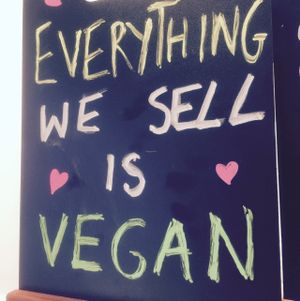 EVERYTHING
WE SELL
IS
VEGAN